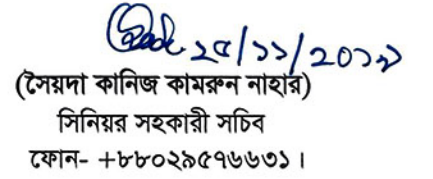 ২৫/১১/২০১৯
(সৈয়দা কানিজ কামরুন নাহার)
সিনিয়র সহকারী সচিব
ফোন- +৮৮০২৯৫৭৬৬৩১।